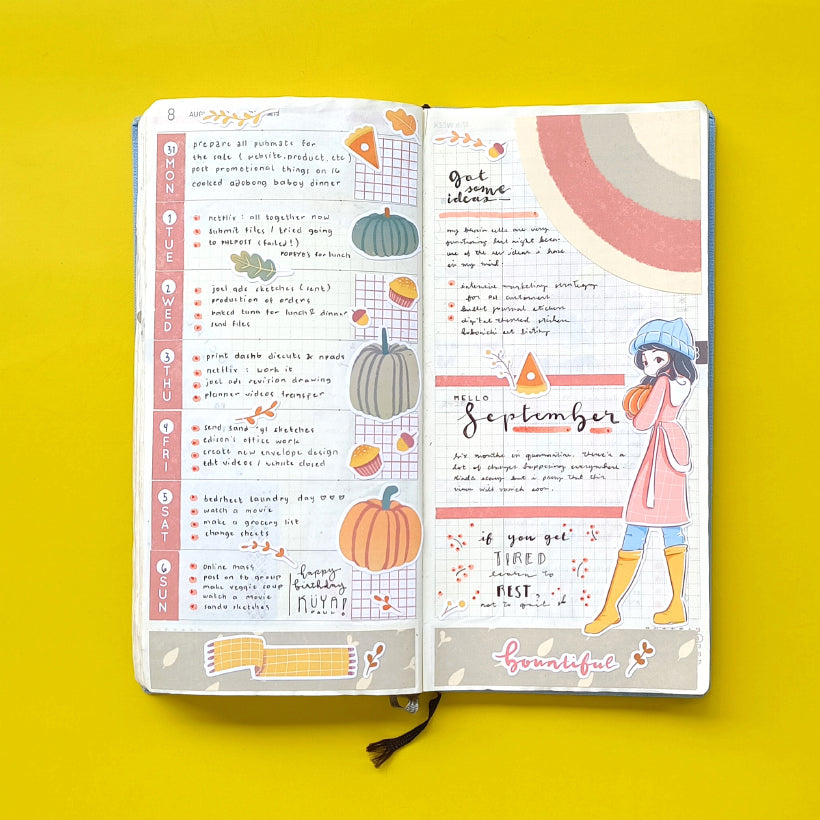 8
31
MON
prepare all pubmats for
the sale (website, product, etc)
post promotional things on 16
cooked adobong baboy dinner
1
TUE
netflix : all together now
submit files / tried going
to PHLPOST (failed!)
POPEYE's for lunch
2
WED
joel ads sketches (sent)
production of orders
baked tuna for lunch & dinner
send files
3
THU
print dashb diecuts & npads
netflix : work it
joel ads revision drawing
planner videos transfer
4
FRI
sketches
edison's office work
create new envelope design
edit videos / white closed
5
SAT
bedsheet laundry day ♡♡♡
watch a movie
make a grocery list
change sheets
6
SUN
online mass
post on fb group
make veggie soup
watch a movie
sandu sketches
happy
birthday
KUYA!
PAUL!
got
some
ideas
my brain cells are very
one of the new ideas i have
in my mind:
extensive marketing strategy
for PH customers
bullet journal stickers
digital themed sticker
hobonichi set listing
HELLO
September
six months in quarantine. there's a
lot of changes happening everywhere
kinda scary but i pray that this
virus will vanish soon.
if you get
TIRED
learn to
REST,
not to quit
bountiful